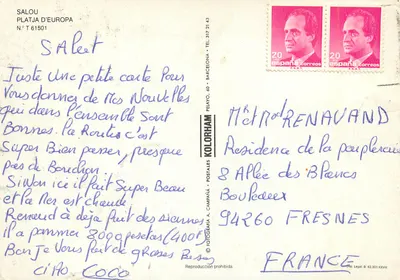 SALOU
PLATJA D'EUROPA
N.º T 61501
SAluT
Juste une petite carte Pour
Vous donner de Nos Nouvelles
qui dans l'ensemble Sont
Bonnes. La Route s'est
Super Bien passer, presque
pas de Bouchon
Sinon ici il fait Super Beau
et la Mer est chaude.
Renaud à déja fait des siennes
Il a paumer 8000 pesetas (400F)
Bon Je Vous fait de grosses Bises
ciao COCO
KOLORHAM
PELAYO, 60 - BARCELONA - TEL.
© FOTOGRAFIA A. CAMPAÑÁ - POSTALES
Reproducción prohibida
20
españa
correos
20
españa
correos
Mr et Mad RENAVAND
Residence de la
8 Allée des
94260 FRESNES
FRANCE